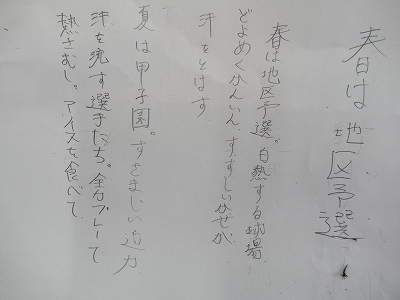 春は地区予選
春は地区予選。白熱する球場。
どよめくかんいん すずしいかぜが
汗をとばす
夏は甲子園。すさまじい迫力
汗を流す選手たち。全力プレーで
熱さむし。アイスを食べて